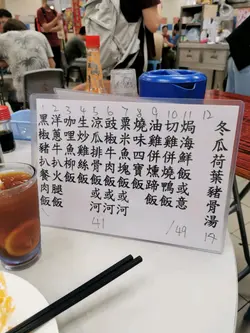 1 黑椒豬扒餐肉飯
2 洋蔥牛火腿飯
3 咖喱魚柳飯
4 生炒絲飯
5 涼瓜排骨飯或河
6 豉椒牛肉飯或河
7 粟米魚塊飯或河
8 燒味四寶飯
9 油雞併燻蹄飯
10 切雞併燒鴨飯
11 焗海鮮飯或意
12 冬瓜荷葉豬骨湯
41
/49
14